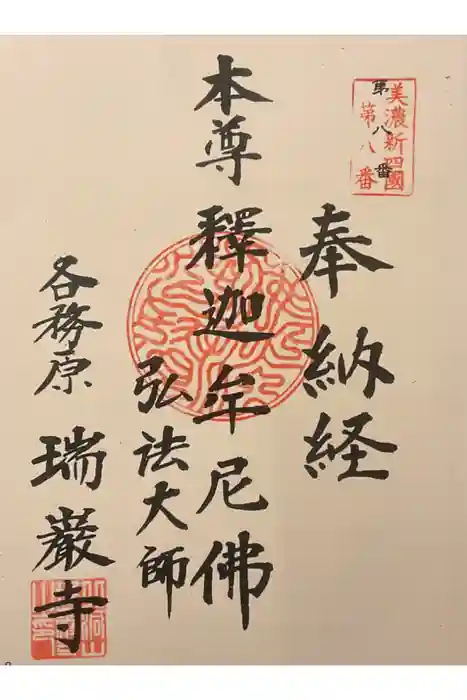 美濃新四國
第八番
第八番
奉納経
本尊釋迦牟尼佛
弘法大師
各務原
瑞巖寺